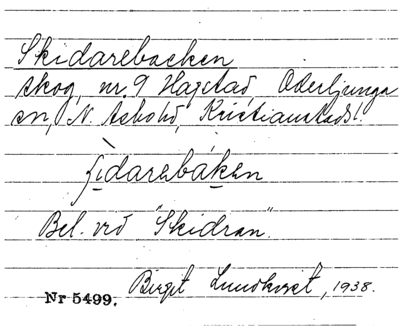 Skidarebacken
skog, nr. 9 Hagstad, Oderljunga
sn, N. Åsbohd, Kristianstads l.
ʃìdarebáken
Bel. vid "Skidran".
Nr 5499. Birgit Lundkvist, 1938.